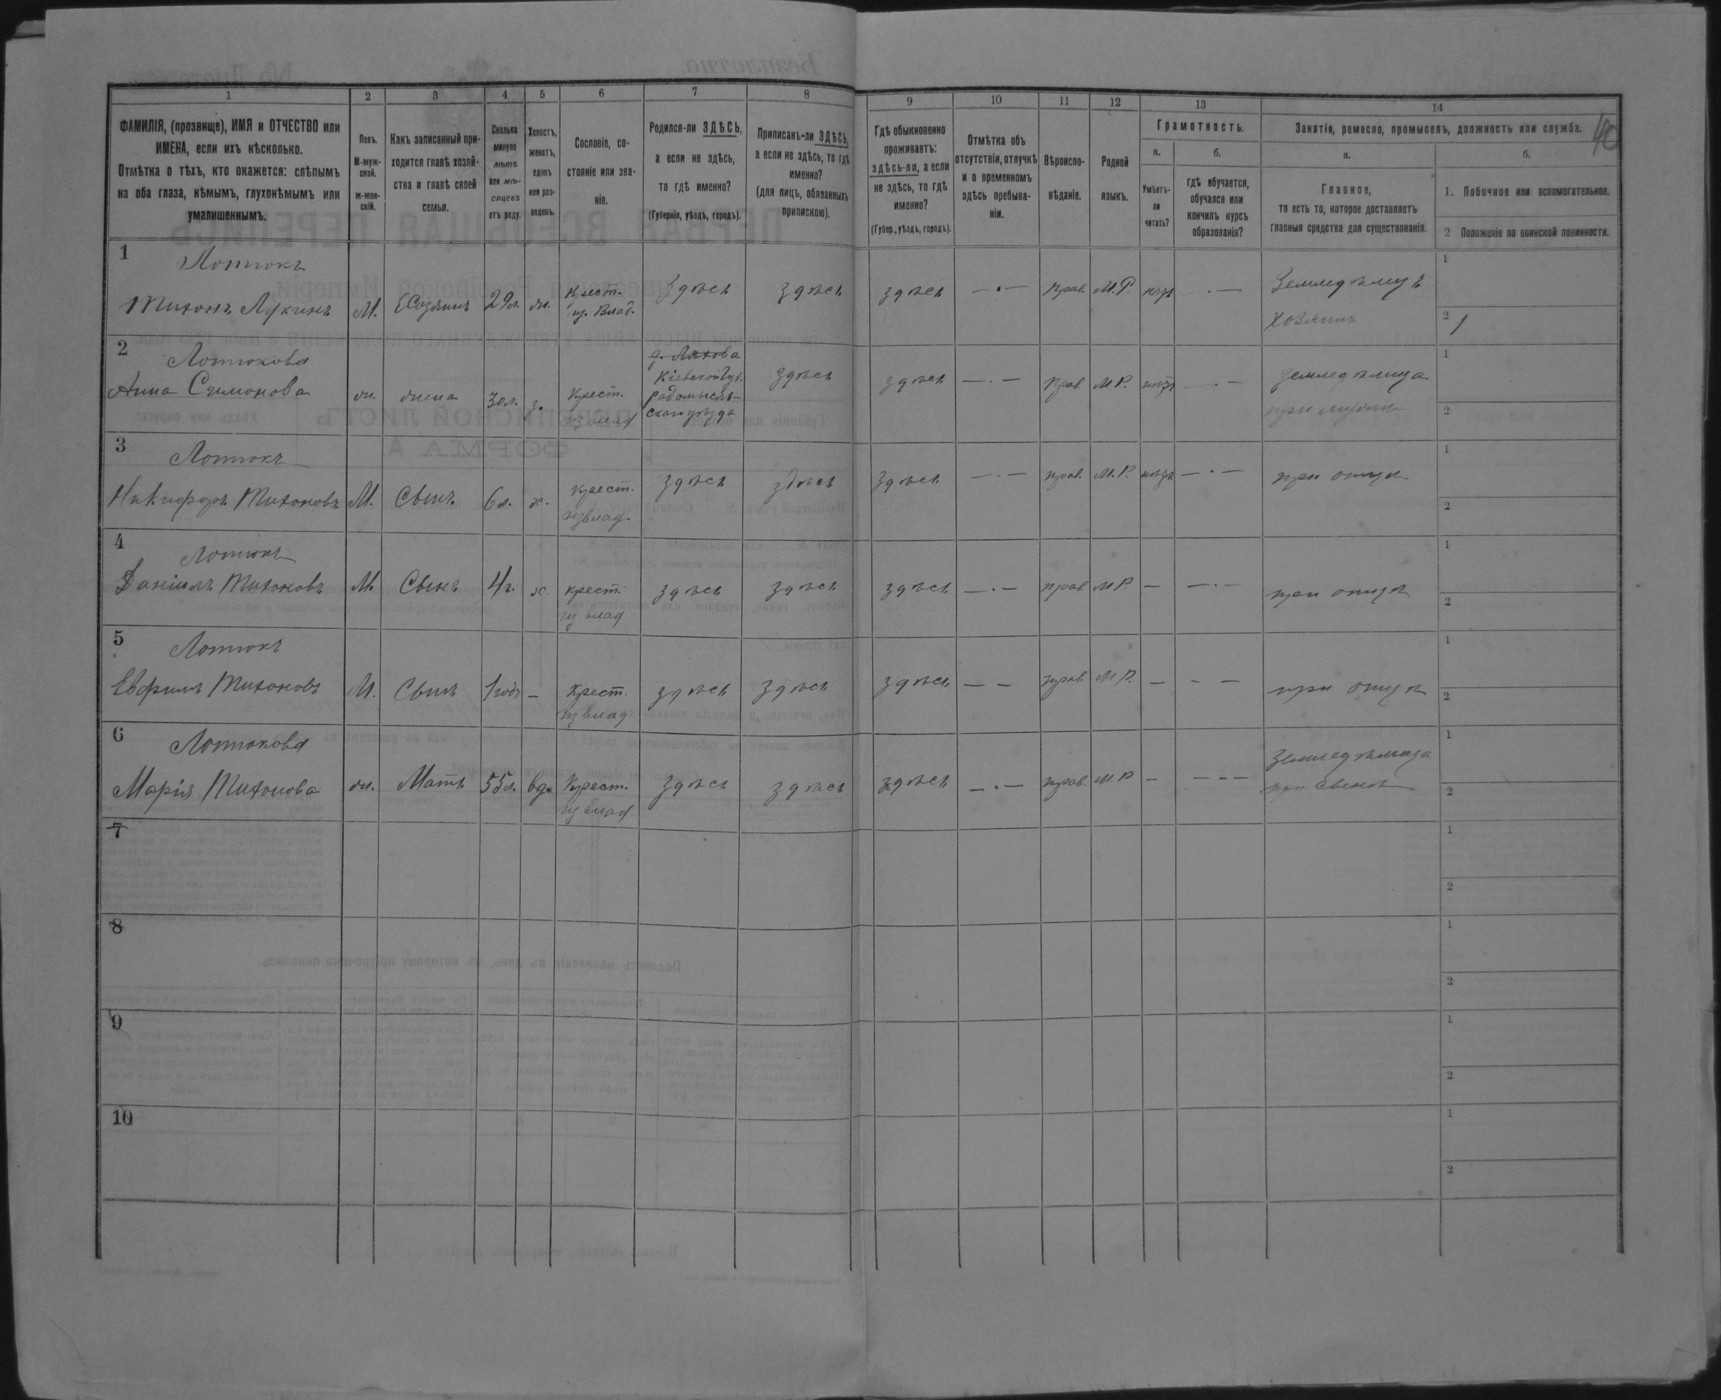 1 2 3 4 5 6 7 8 9 10 11 12 13 14
40
ФАМИЛІЯ, (прозвище), ИМЯ и ОТЧЕСТВО или
ИМЕНА, если ихъ нѣсколько.
Отмѣтка о тѣхъ, кто окажется: слѣпымъ
на оба глаза, нѣмымъ, глухонѣмымъ или
умалишеннымъ.
Полъ.
М-мужской.
ж-женскій.
Какъ записанный при-
ходится главѣ хозяй-
ства и главѣ своей
семьи.
Сколько
минуло
лѣтъ
или мѣ-
сяцевъ
отъ роду.
Холостъ,
женатъ,
вдовъ
или раз-
веденъ.
Сословіе, со-
стояніе или зва-
ніе.
Родился-ли ЗДѢСЬ,
а если не здѣсь,
то гдѣ именно?
(Губернія, уѣздъ, городъ).
Приписанъ-ли ЗДѢСЬ,
а если не здѣсь, то гдѣ
именно?
(для лицъ, обязанныхъ
припискою).
Гдѣ обыкновенно
проживаетъ:
здѣсь-ли, а если
не здѣсь, то гдѣ
именно?
(Губер., уѣздъ, городъ).
Отмѣтка объ
отсутствіи, отлучкѣ
и о временномъ
здѣсь пребыва-
ніи.
Вѣроиспо-
вѣданіе.
Родной
языкъ.
Грамотность.
а.
Умѣетъ-
ли
читать?
б.
Гдѣ обучается,
обучался или
кончилъ курсъ
образованія?
Занятіе, ремесло, промыселъ, должность или служба.
а.
Главное,
то есть то, которое доставляетъ
главныя средства для существованія.
б.
1. Побочное или вспомогательное.
2 Положеніе по воинской повинности.
1 Лотюкъ
Тихонъ Лукинъ М. Хозяинъ 29л. ж. Крест. здѣсь здѣсь здѣсь — . — прав. М.Р. — . — Земледѣлецъ 1
из Влад. хозяинъ 2 /
2 Лотюкова д. Ляхова 1
Анна Семионова ж. жена 30л. з. Крест. Кіевской Губ. здѣсь здѣсь — . — прав М.Р. — . — земледѣлица
из влад Радомысль- 2
скаго уѣзда
3 Лотюкъ 1
Никифоръ Тихоновъ М. Сынъ 6л. х. Крест. здѣсь здѣсь здѣсь — . — прав. М.Р. — . — при отцѣ
из влад. 2
4 Лотюкъ 1
Даніилъ Тихоновъ М. Сынъ 4г. х. крест. здѣсь здѣсь здѣсь — . — прав М.Р. — — . — при отцѣ
из влад 2
5 Лотюкъ 1
Ефимъ Тихоновъ М. Сынъ 1годъ — Крест. здѣсь здѣсь здѣсь — — прав М.Р. — — — при отцѣ
из влад 2
6 Лотюкова земледѣлица 1
Марія Тихонова ж. Мать 55л. вд. Крест. здѣсь здѣсь здѣсь — . — прав. М.Р. — — - — при сынѣ
из влад 2
7 1
2
8 1
2
9 1
2
10 1
2